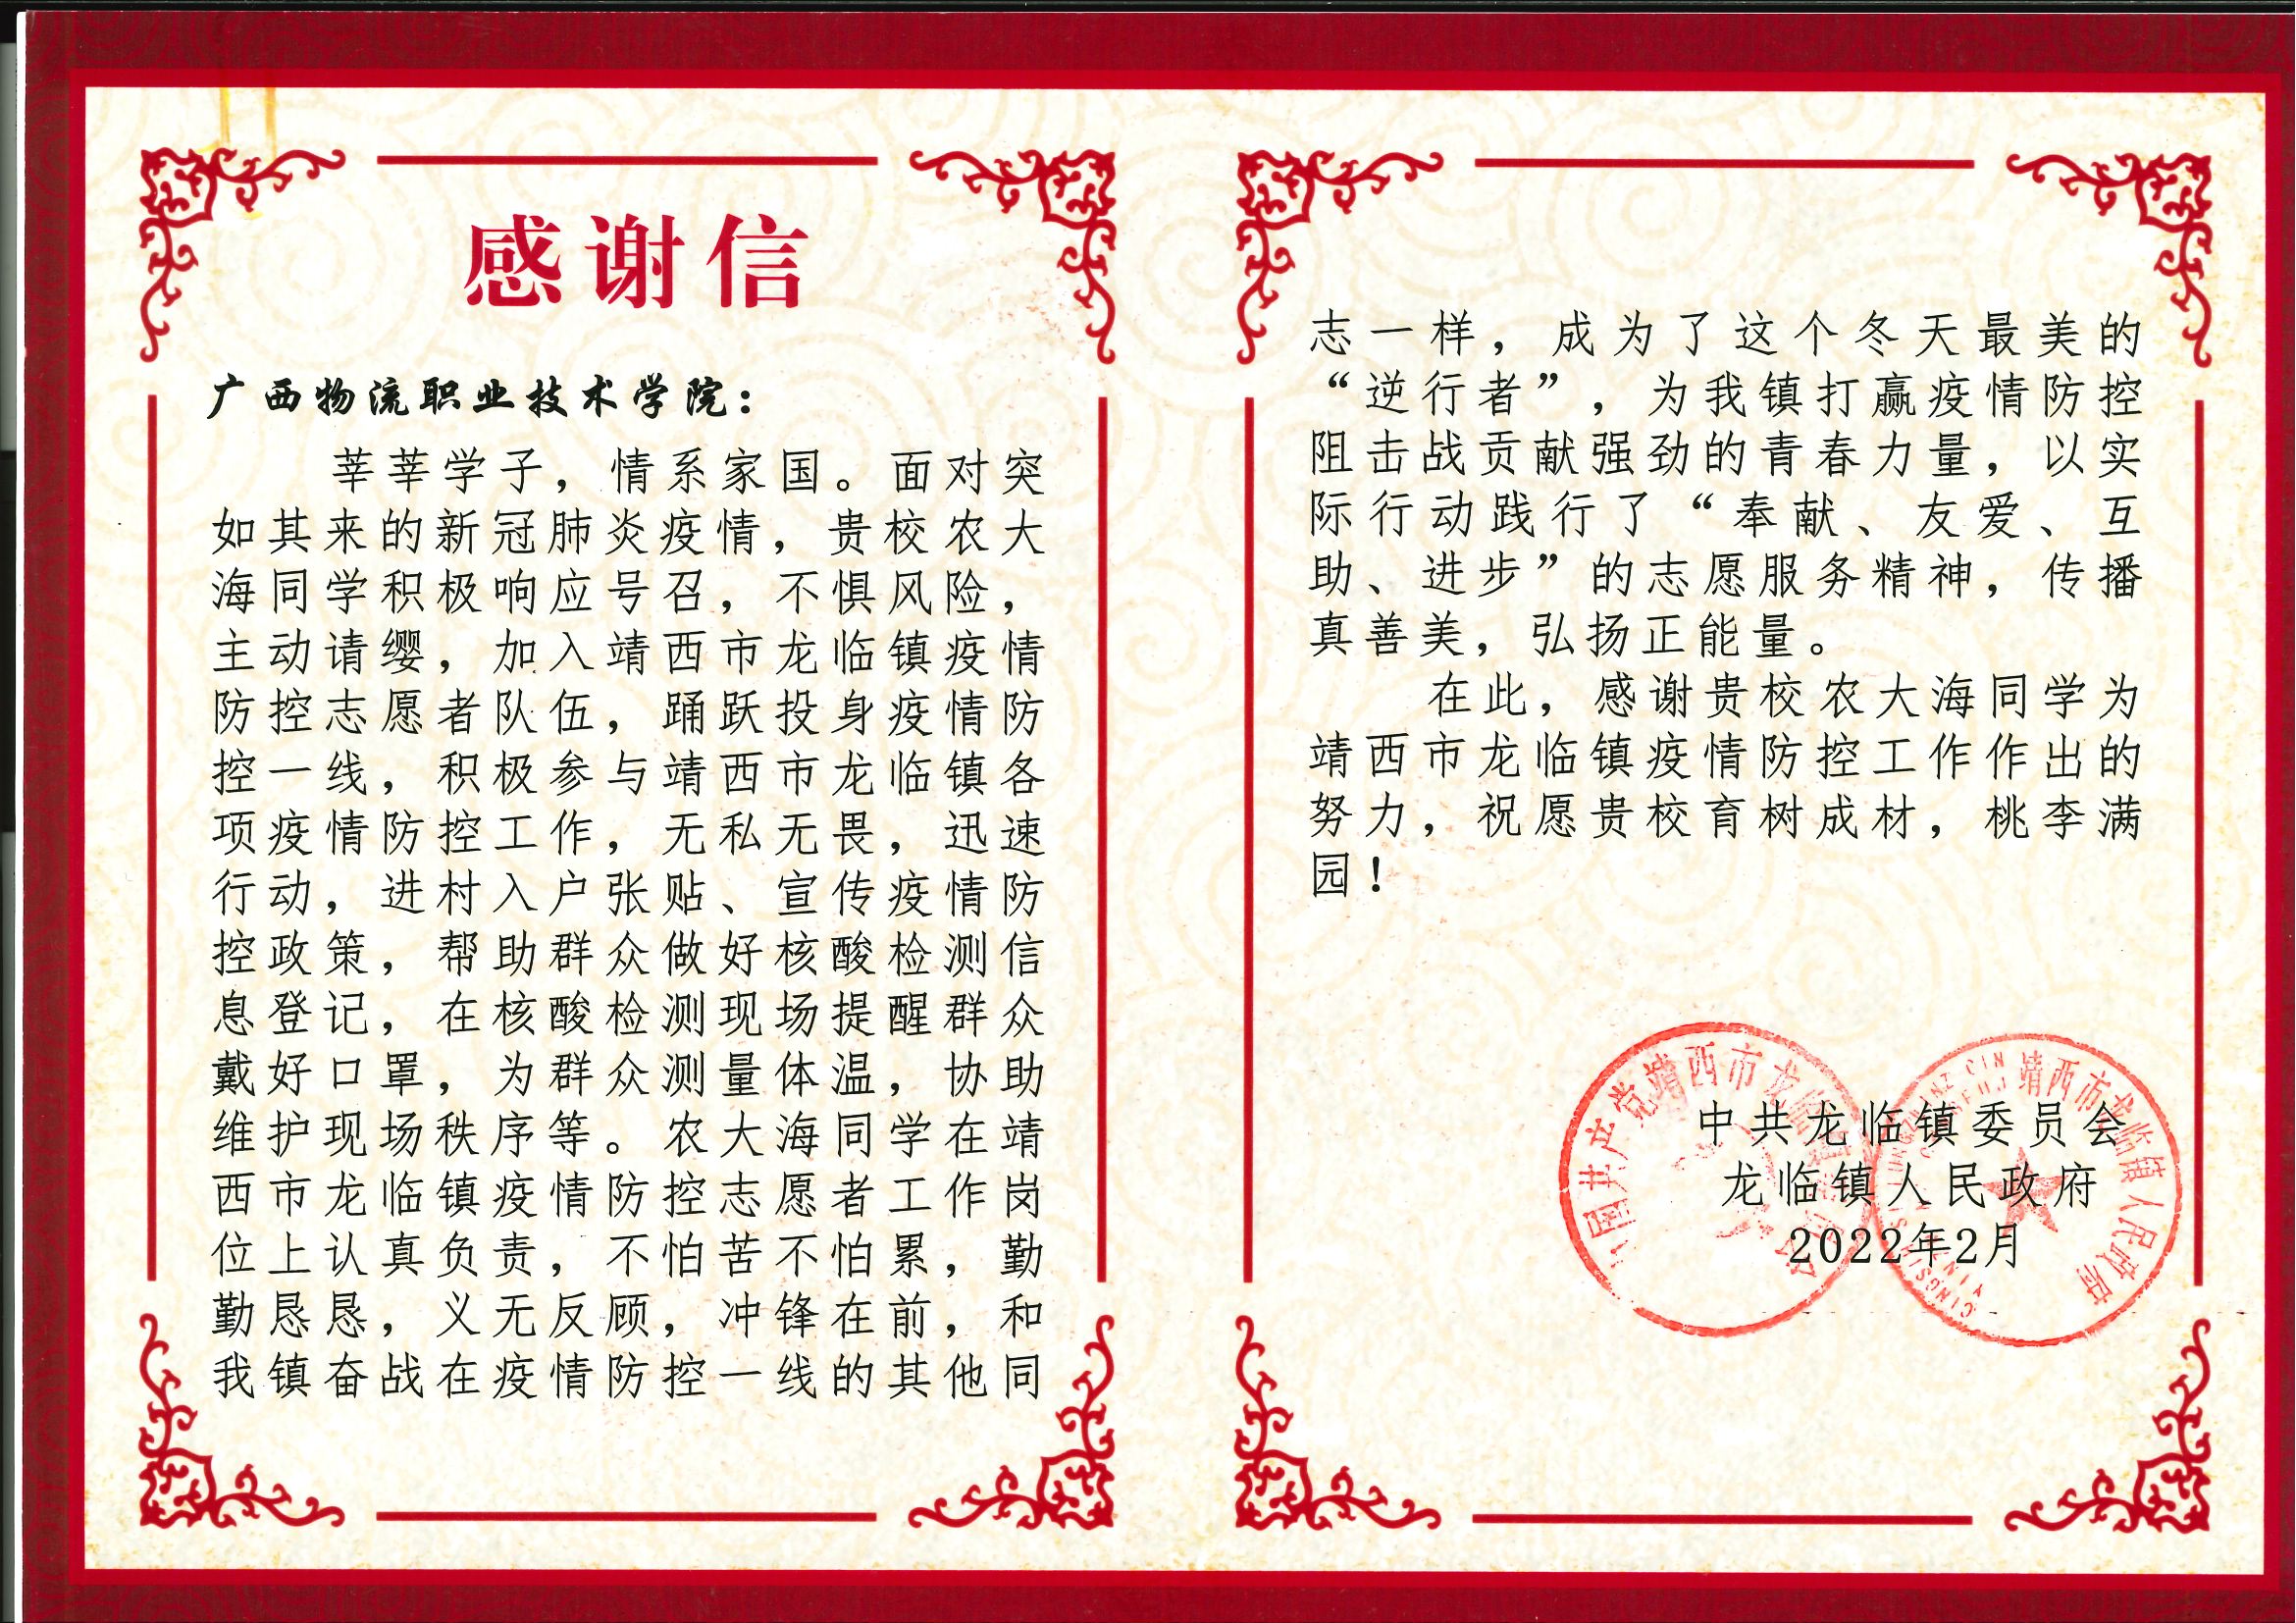 感谢信
广西物流职业技术学院：
莘莘学子，情系家国。面对突
如其来的新冠肺炎疫情，贵校农大
海同学积极响应号召，不惧风险，
主动请缨，加入靖西市龙临镇疫情
防控志愿者队伍，踊跃投身疫情防
控一线，积极参与靖西市龙临镇各
项疫情防控工作，无私无畏，迅速
行动，进村入户张贴、宣传疫情防
控政策，帮助群众做好核酸检测信
息登记，在核酸检测现场提醒群众
戴好口罩，为群众测量体温，协助
维护现场秩序等。农大海同学在靖
西市龙临镇疫情防控志愿者工作岗
位上认真负责，不怕苦不怕累，勤
勤恳恳，义无反顾，冲锋在前，和
我镇奋战在疫情防控一线的其他同
志一样，成为了这个冬天最美的
“逆行者”，为我镇打赢疫情防控
阻击战贡献强劲的青春力量，以实
际行动践行了“奉献、友爱、互
助、进步”的志愿服务精神，传播
真善美，弘扬正能量。
在此，感谢贵校农大海同学为
靖西市龙临镇疫情防控工作作出的
努力，祝愿贵校育树成材，桃李满
园！
中共龙临镇委员会
龙临镇人民政府
2022年2月
国共产党靖西市龙临
靖西市龙临镇人民政府